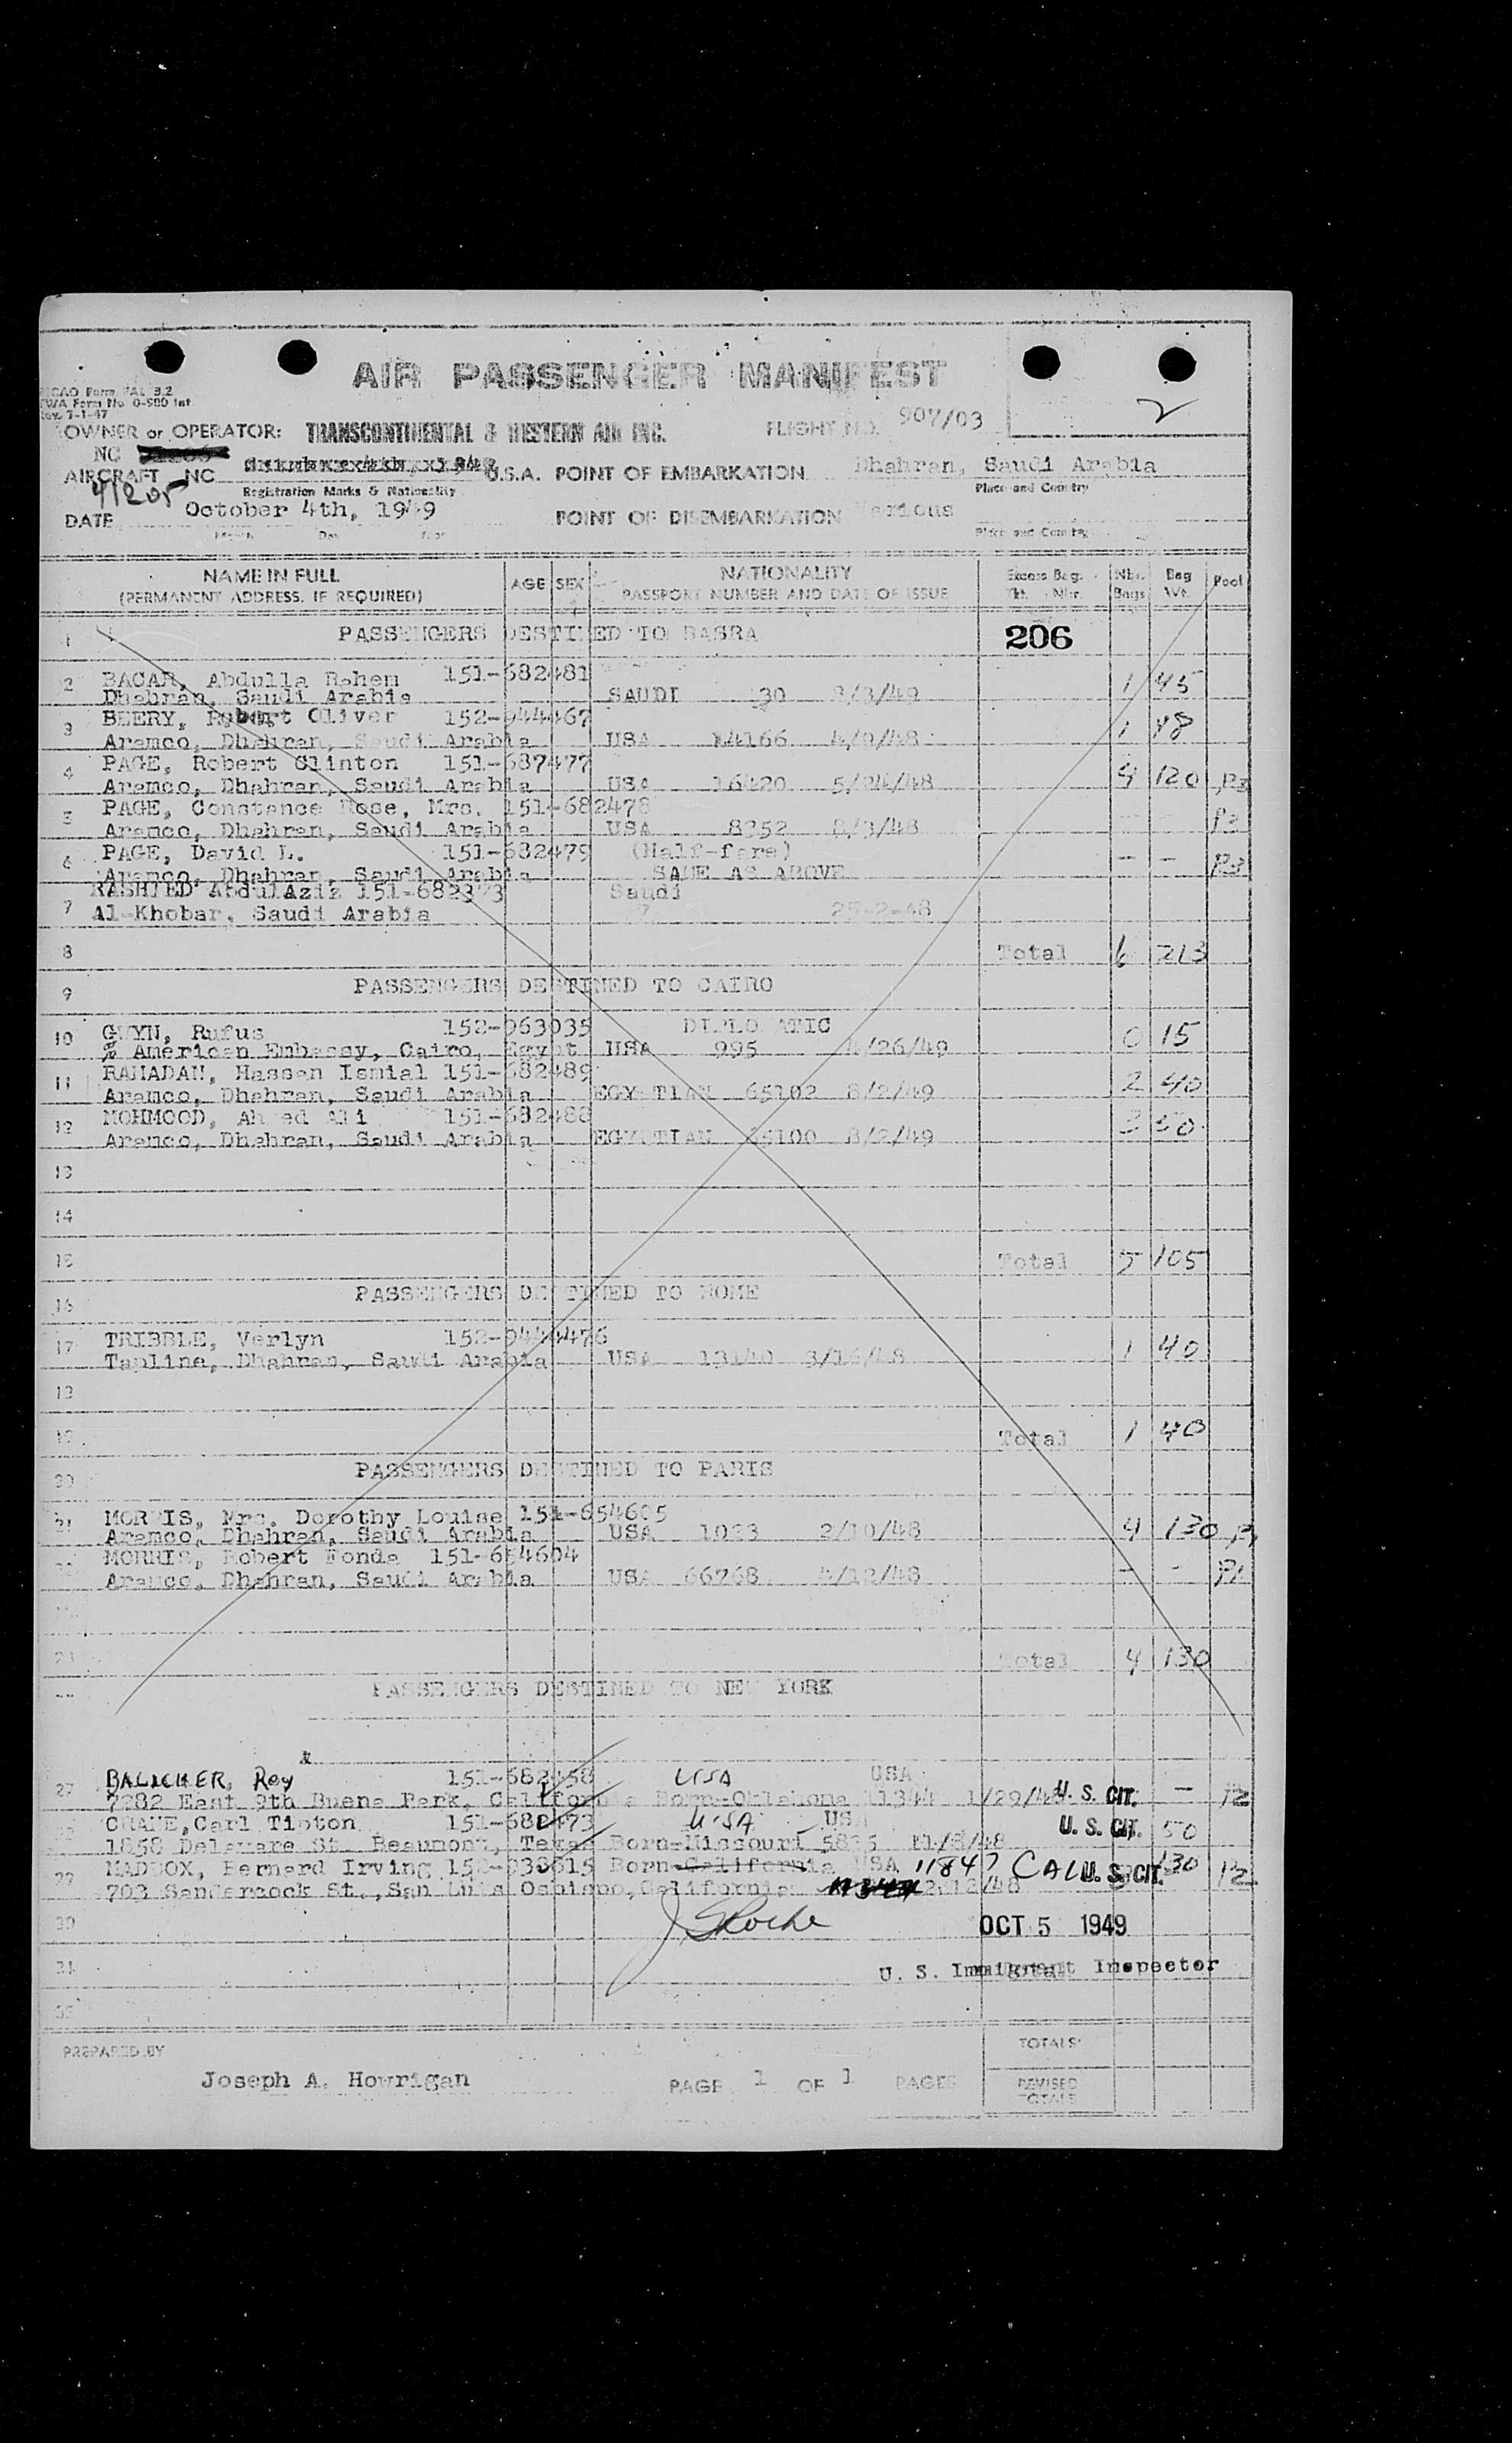 AIR PASSENGER MANIFEST
ICAO Form FAL 3.2
TWA Form No. 0-500 Int
Rev. 7-1-47
2
OWNER or OPERATOR: TRANSCONTINENTAL & WESTERN AIR INC. FLIGHT NO. 907/03
NC
AIRCRAFT NC U.S.A. POINT OF EMBARKATION Dhahran, Saudi Arabia
41205 Registration Marks & Nationality Place and Country
DATE October 4th, 1949 POINT OF DISEMBARKATION Various
Month Day Year Place and Country
NAME IN FULL AGE SEX NATIONALITY Excess Bag. Nbr. Bag Pool
(PERMANENT ADDRESS, IF REQUIRED) PASSPORT NUMBER AND DATE OF ISSUE Tkt. Nbr. Bags Wt.
1 PASSENGERS DESTINED TO BASRA 206
2 BACAR, Abdulla Rahem 151-682481
Dhahran, Saudi Arabia SAUDI 30 /3/49 1 45
3 BEERY, Robert Oliver 152-944467
Aramco, Dhahran, Saudi Arabia USA 14166 4/9/48 1 48
4 PAGE, Robert Clinton 151-687477
Aramco, Dhahran, Saudi Arabia USA 16420 5/24/48 4 120 P3
5 PAGE, Constance Rose, Mrs. 151-682478
Aramco, Dhahran, Saudi Arabia USA 8352 8/3/48 - - P3
6 PAGE, David L. 151-682479 (Half-fare)
Aramco, Dhahran, Saudi Arabia SAME AS ABOVE - - P3
RASHIED AbdulAziz 151-682373 Saudi
7 Al-Khobar, Saudi Arabia 7 25-2-48
8 Total 6 213
9 PASSENGERS DESTINED TO CAIRO
10 GWYN, Rufus 152-963035 DIPLO ATIC
% American Embassy, Cairo, Egypt USA 995 4/26/49 0 15
11 RAMADAN, Hassan Ismial 151-682489
Aramco, Dhahran, Saudi Arabia EGYPTIAN 65102 8/2/49 2 40
12 MOHMOOD, Ah ed Ali 151-682488
Aramco, Dhahran, Saudi Arabia EGYPTIAN 65100 8/2/49 3 50
13
14
15 Total 5 105
16 PASSENGERS DESTINED TO ROME
17 TRIBBLE, Verlyn 152-9444476
Tapline, Dhahran, Saudi Arabia USA 13140 3/16/48 1 40
18
19 Total 1 40
20 PASSENGERS DESTINED TO PARIS
21 MORRIS, Mrs. Dorothy Louise 151-654605
Aramco, Dhahran, Saudi Arabia USA 1033 2/10/48 4 130
MORRIS, Robert Fonda 151-654604
Aramco, Dhahran, Saudi Arabia USA 66768 4/12/48 - -
Total 4 130
PASSENGERS DESTINED TO NEW YORK
27 BALICHER, Roy 151-682458 USA USA
7282 East 9th Buena Park, California Born-Oklahoma 11344 1/29/48 U. S. CIT. - P2
CRANE, Carl Tipton 151-682473 USA US
1858 Delaware St. Beaumont, Texas Born-Missouri 5835 11/8/48 U. S. CIT. 50
29 MADDOX, Bernard Irving 152-930615 Born-California USA 11847 CAL U. S. CIT. 130 P2
703 Sandercock St., San Luis Osbispo, California 2/12/48
30 OCT 5 1949
31 U. S. Immigrant Inspector
PREPARED BY Joseph A. Howrigan PAGE 1 OF 1 PAGES
TOTALS
REVISED TOTALS